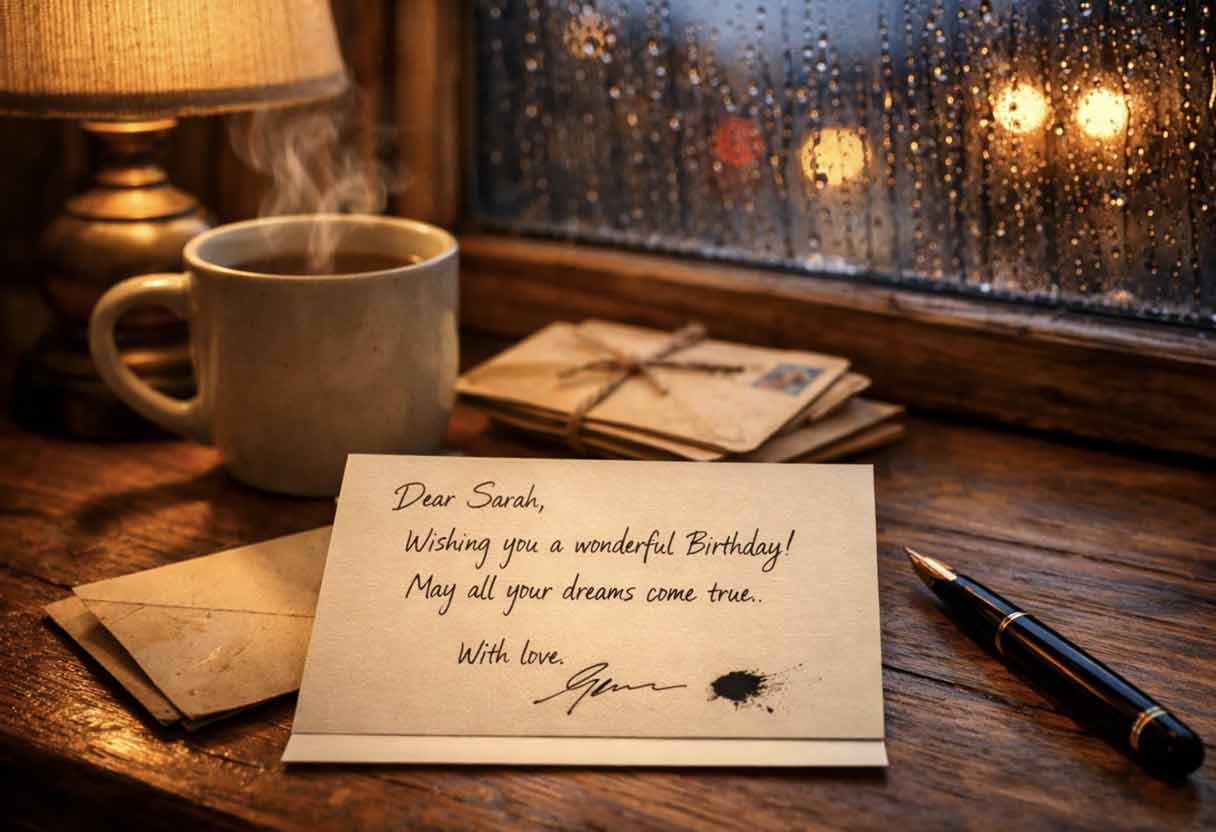 Dear Sarah,
Wishing you a wonderful Birthday!
May all your dreams come true..
With love.